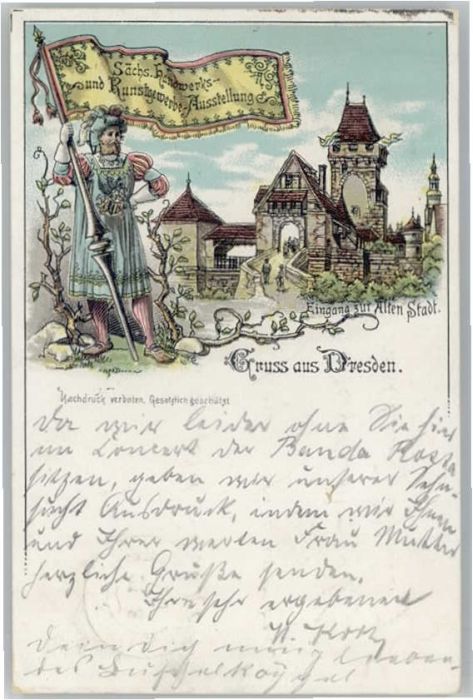 Sächs. Handwerks-
und Kunstgewerbe-Ausstellung
Eingang zur Alten Stadt.
Gruss aus Dresden.
Nachdruck verboten. Gesetzlich geschützt
Da wir leider ohne Sie hier
im Concert der Banda Rossa
sitzen, geben wir unserer Sehn-
sucht Ausdruck, indem wir Ihnen
und Ihrer werten Frau Mutter
herzliche Grüße senden.
Ihr sehr ergebener
Dein Dich innig liebendes